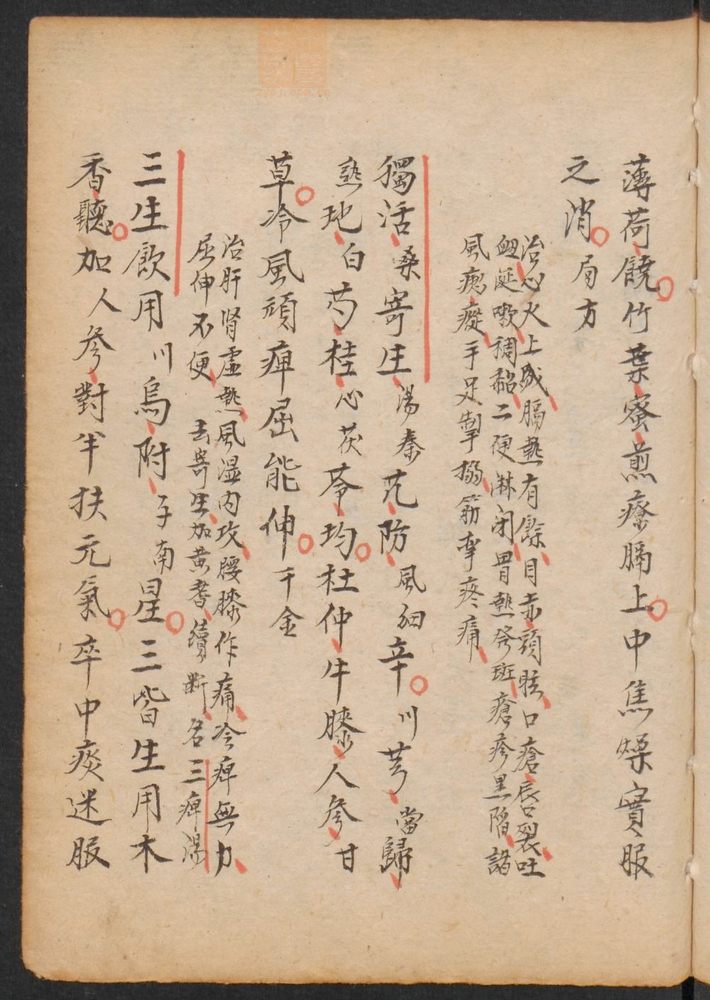 薄荷饒竹葉蜜煎療膈上中焦燥實服
之消局方
治心火上盛膈熱有餘目赤頭眩口瘡唇裂吐
衄涎嗽稠黏二便淋闭胃熱發斑瘡疹黑陷諸
風瘈瘲手足掣搦筋挛疼痛
獨活桑寄生湯秦艽防風細辛川芎當歸
熟地白芍桂心茯苓均杜仲牛膝人參甘
草冷風頑痺屈能伸千金
治肝肾虛熱風湿内攻腰膝作痛冷痺無力
屈伸不便去寄生加黄耆續斷名三痺湯
三生飲用川烏附子南星三皆生用木
香聽加人參對半扶元氣卒中痰迷服